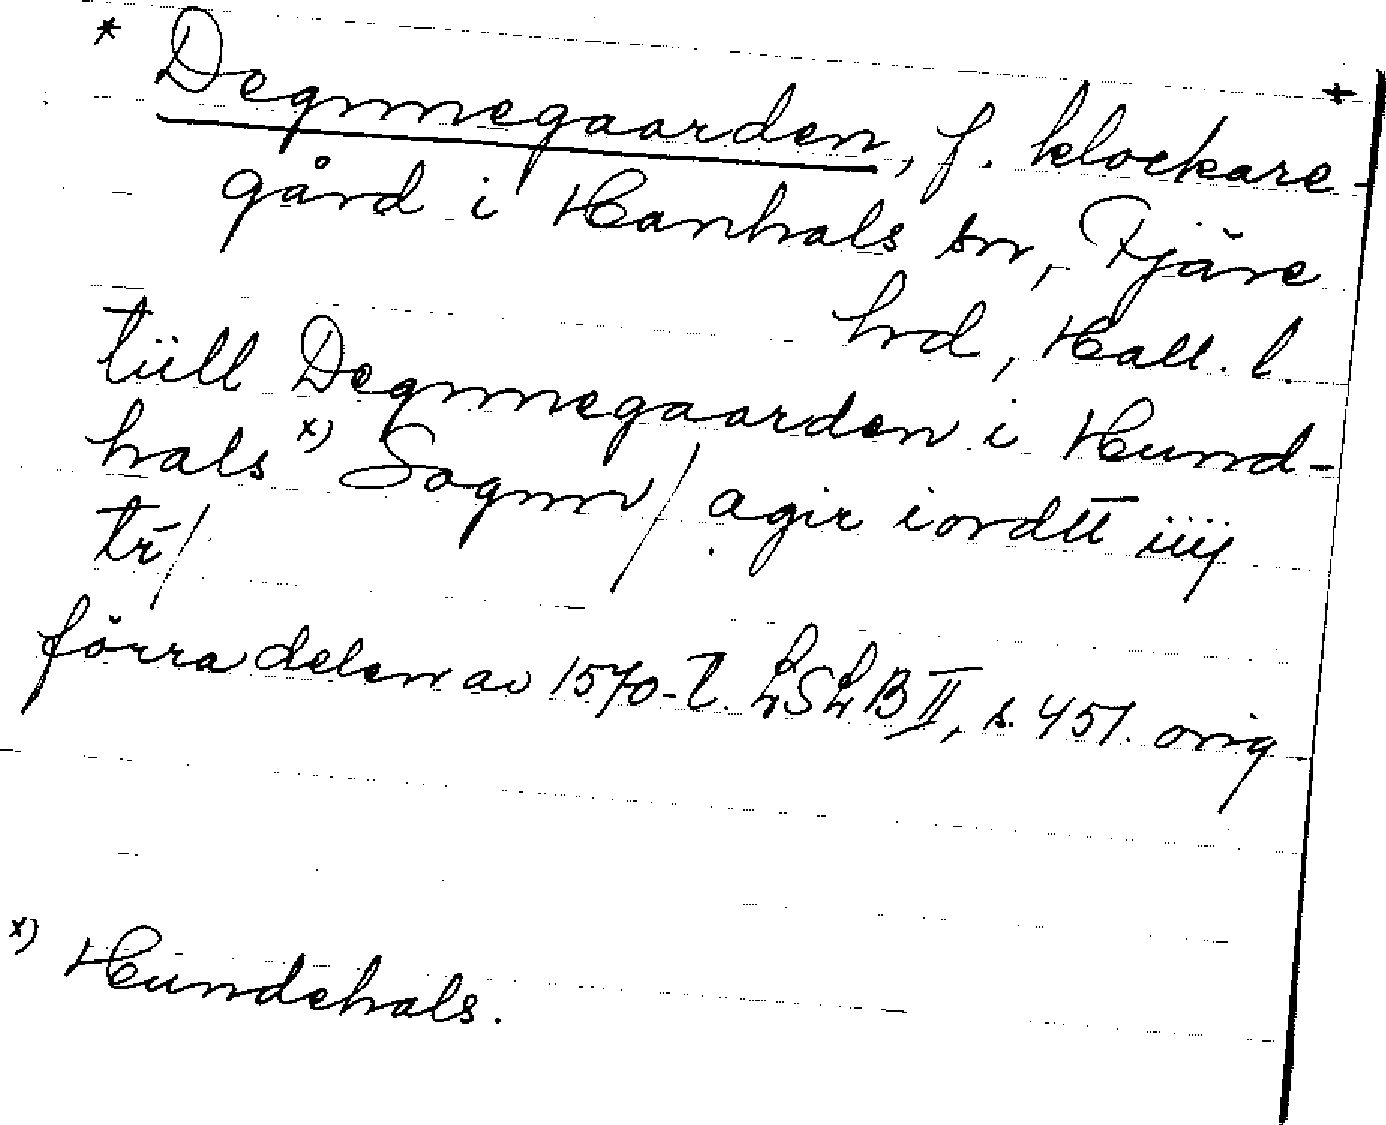 * Degnnegaarden, f. klockare- +
gård i Hanhals sn, Fjäre
hrd, Hall. l.
tiill Degnnegaarden i Hund-
hals x) Sognn / agir iordtt iiij
tr̄ /
förra delen av 1570-t. LSLB II, s. 451. orig
x) Hundehals.